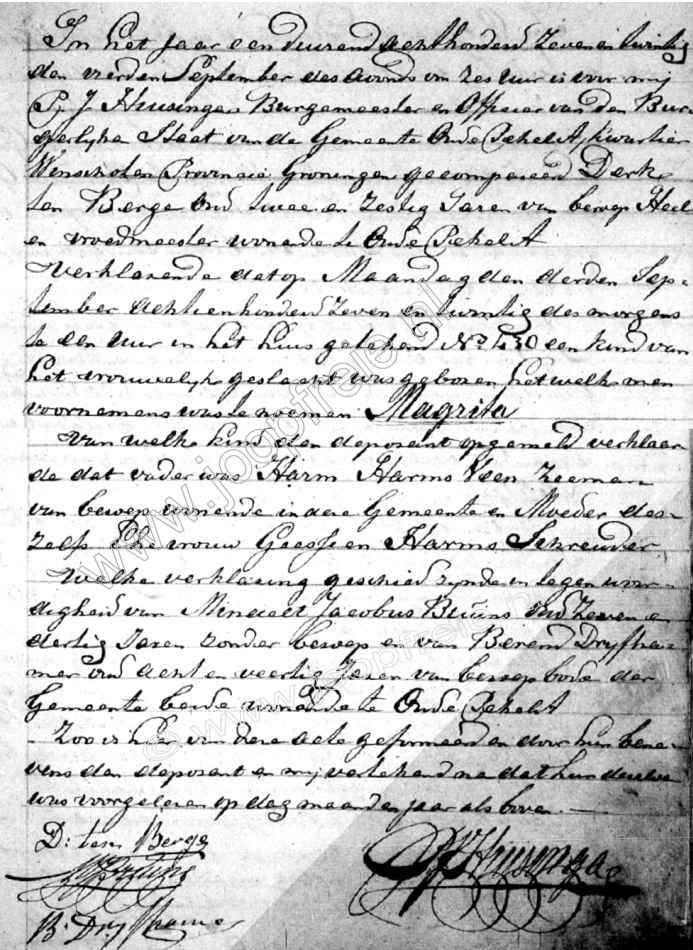 In het jaar een duizend achthonderd zeven en twintig
den vierden September des avonds om zes uur is voor mij
P. J. Huisinga Burgemeester en Officier van den Bur-
gerlyke Staat van de Gemeente Oude Pekel A, kwartier
Winschoten Provincie Groningen gecompareerd Derk
ten Berge oud twee en zestig Jaren van beroep Heel
en vroedmeester wonende te Oude Pekel A
Verklarende dat op Maandag den derden Sep-
tember achtienhonderd zeven en twintig des morgens
te een uur in het huis getekend No 430 een kind van
het vrouwelyk geslacht was geboren het welk men
voornemens was te noemen Magrita
Van welk kind den deposant opgemeld verklaar
de dat vader was Harm Harms Veen zeeman
van beroep wonende in deze Gemeente en Moeder des-
zelfs Ehevrouw Geessien Harms Schreuder
Welke verklaring geschied zynde in tegenwoor-
digheid van Minaelt Jacobus Bruins oud zeven en
dertig Jaren zonder beroep en van Berend Dryfha-
mer oud acht en veertig Jaren van beroep bode der
Gemeente beide wonende te Oude Pekel A
Zoo is hier van deze acte geformeerd en door hun bene-
vens den deposant en mij getekend na dat hun dezelve
was voorgelezen op dag maand en jaar als boven.
D: ten Berge
Bruins
B. Dryfhamer
Huisinga
www.joopfreie.nl